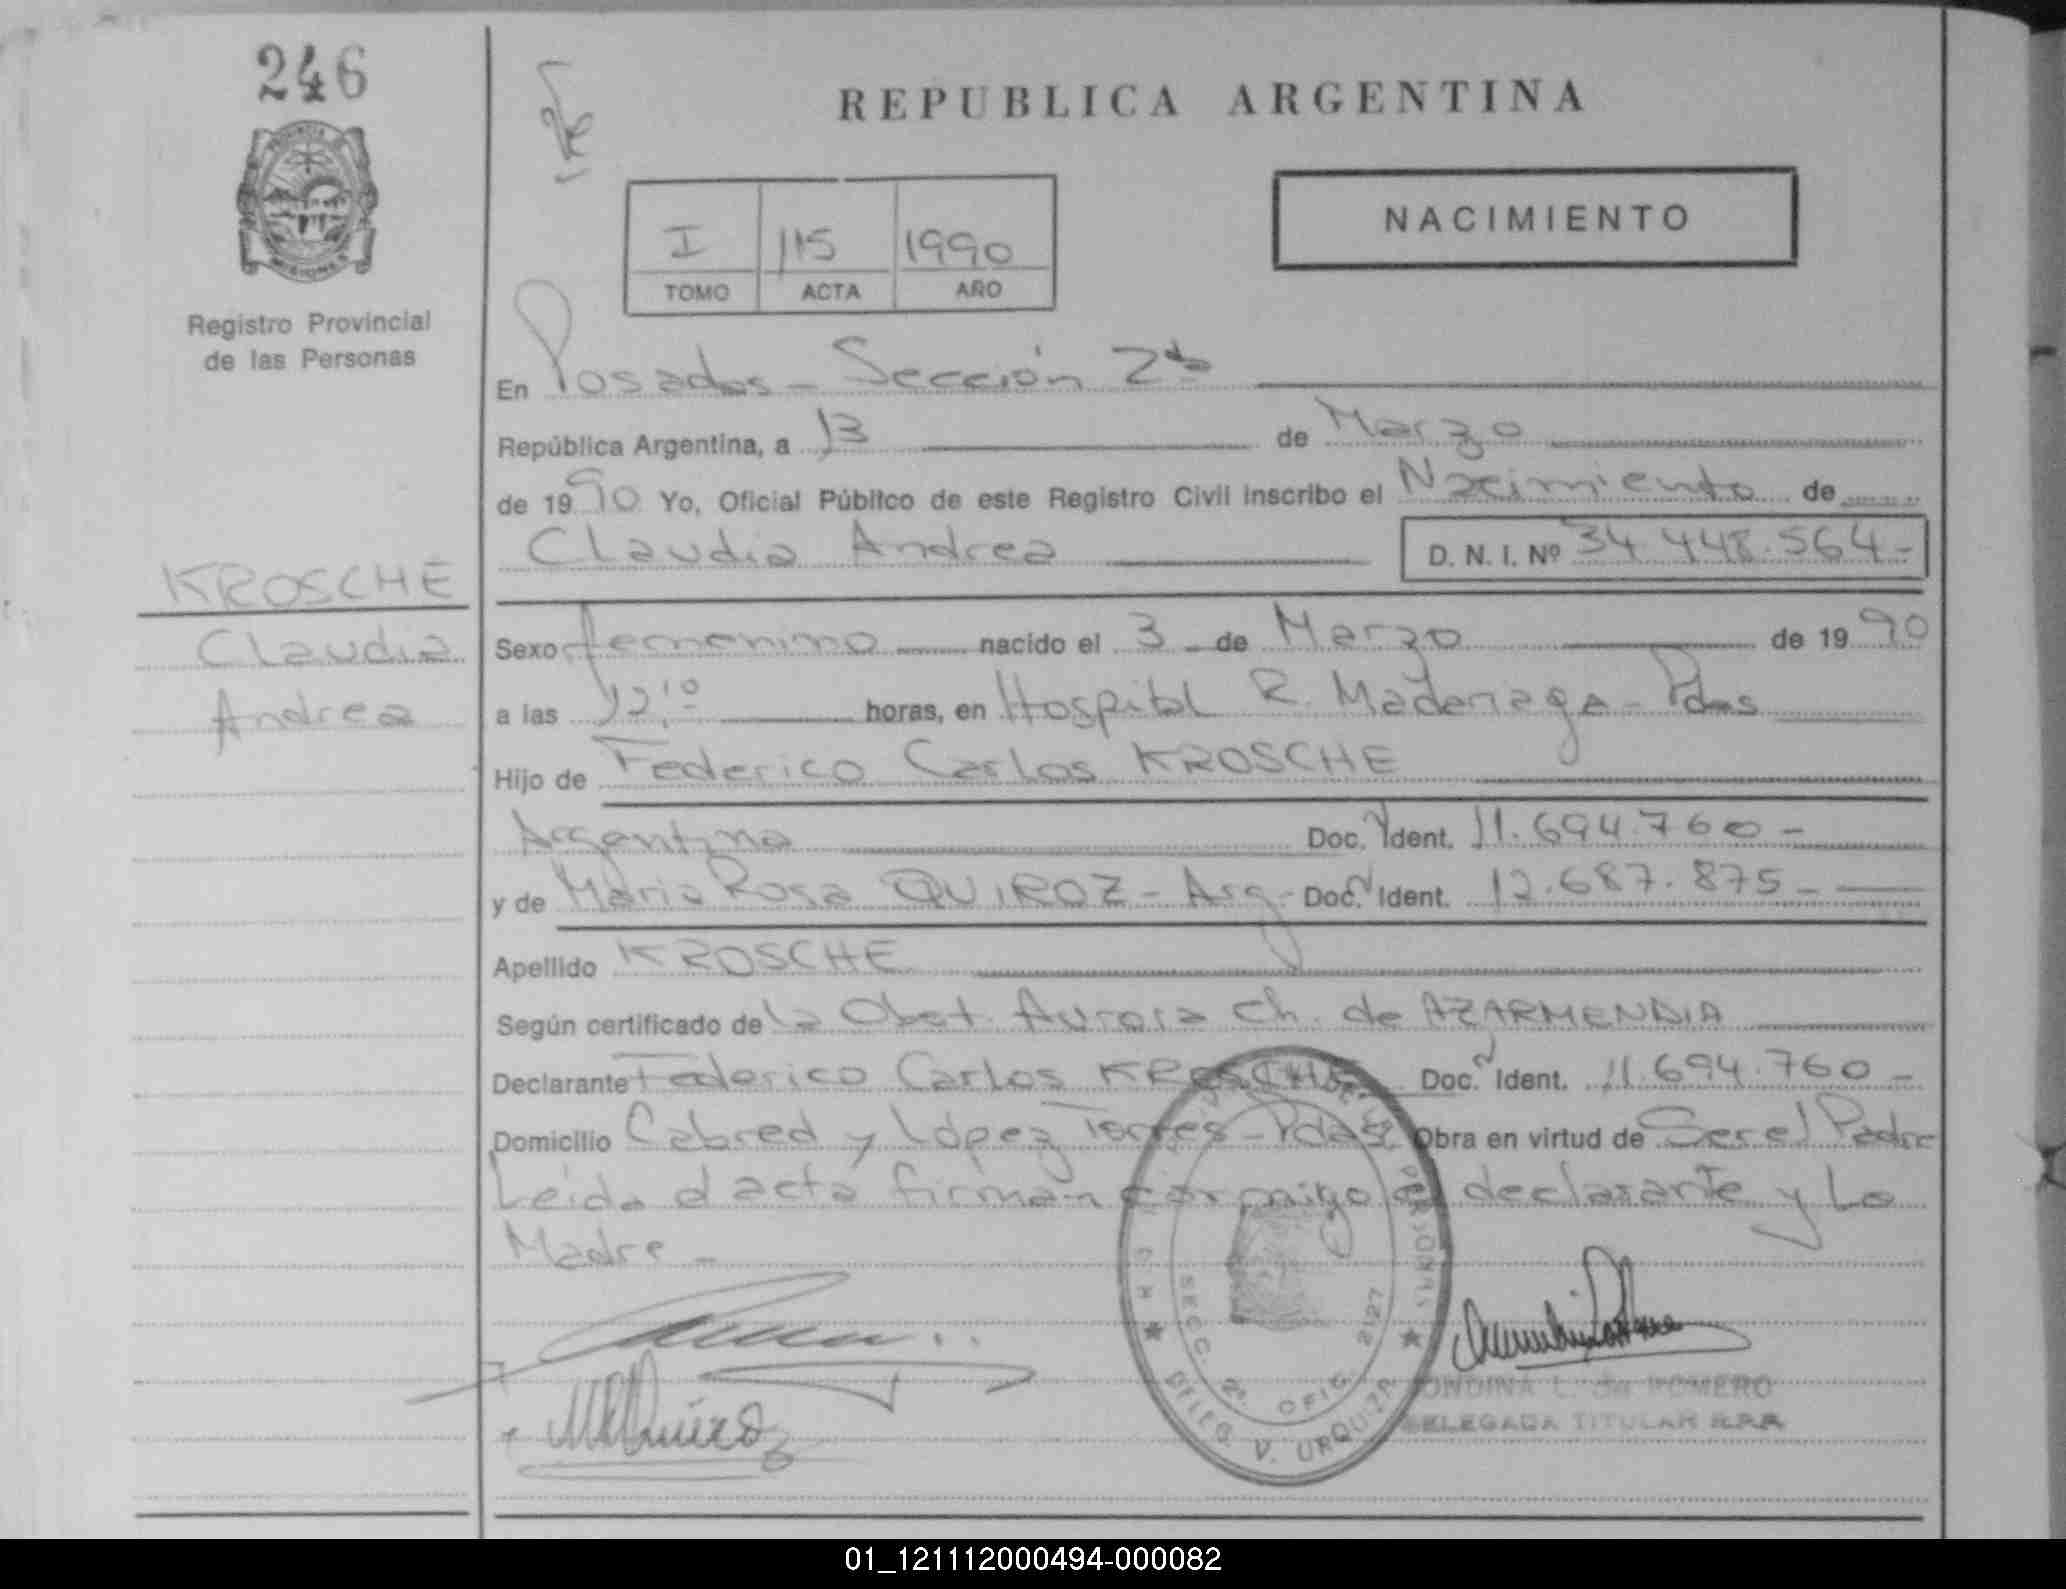 246
PROVINCIA
MISIONES
Registro Provincial
de las Personas
KROSCHE
Claudia
Andrea
REPUBLICA ARGENTINA
NACIMIENTO
I 115 1990
TOMO ACTA AÑO
En Posadas - Sección 2da
República Argentina, a 13 de Marzo
de 1990 Yo, Oficial Público de este Registro Civil inscribo el Nacimiento de
Claudia Andrea D. N. I. Nº 34.448.564-
Sexo femenino nacido el 3 de Marzo de 1990
a las 12,10 horas, en Hospital R. Madariaga - Pdas
Hijo de Federico Carlos KROSCHE
Argentina Doc. Ident. 11.694.760-
y de Maria Rosa QUIROZ - Arg- Doc. Ident. 12.687.875-
Apellido KROSCHE
Según certificado de la Obst. Aurora Ch. de AZARMENDIA
Declarante Federico Carlos KROSCHE Doc. Ident. 11.694.760-
Domicilio Cabred y López Torres - Pdas Obra en virtud de Ser el Padre
Leída el acta firman conmigo el declarante y La
Madre -
DE LAS PERSONAS
SECC. 2ª. OFIC. 2127
DELEG. V. URQUIZA
ONDINA L. de ROMERO
DELEGADA TITULAR R.P.P.
01_121112000494-000082